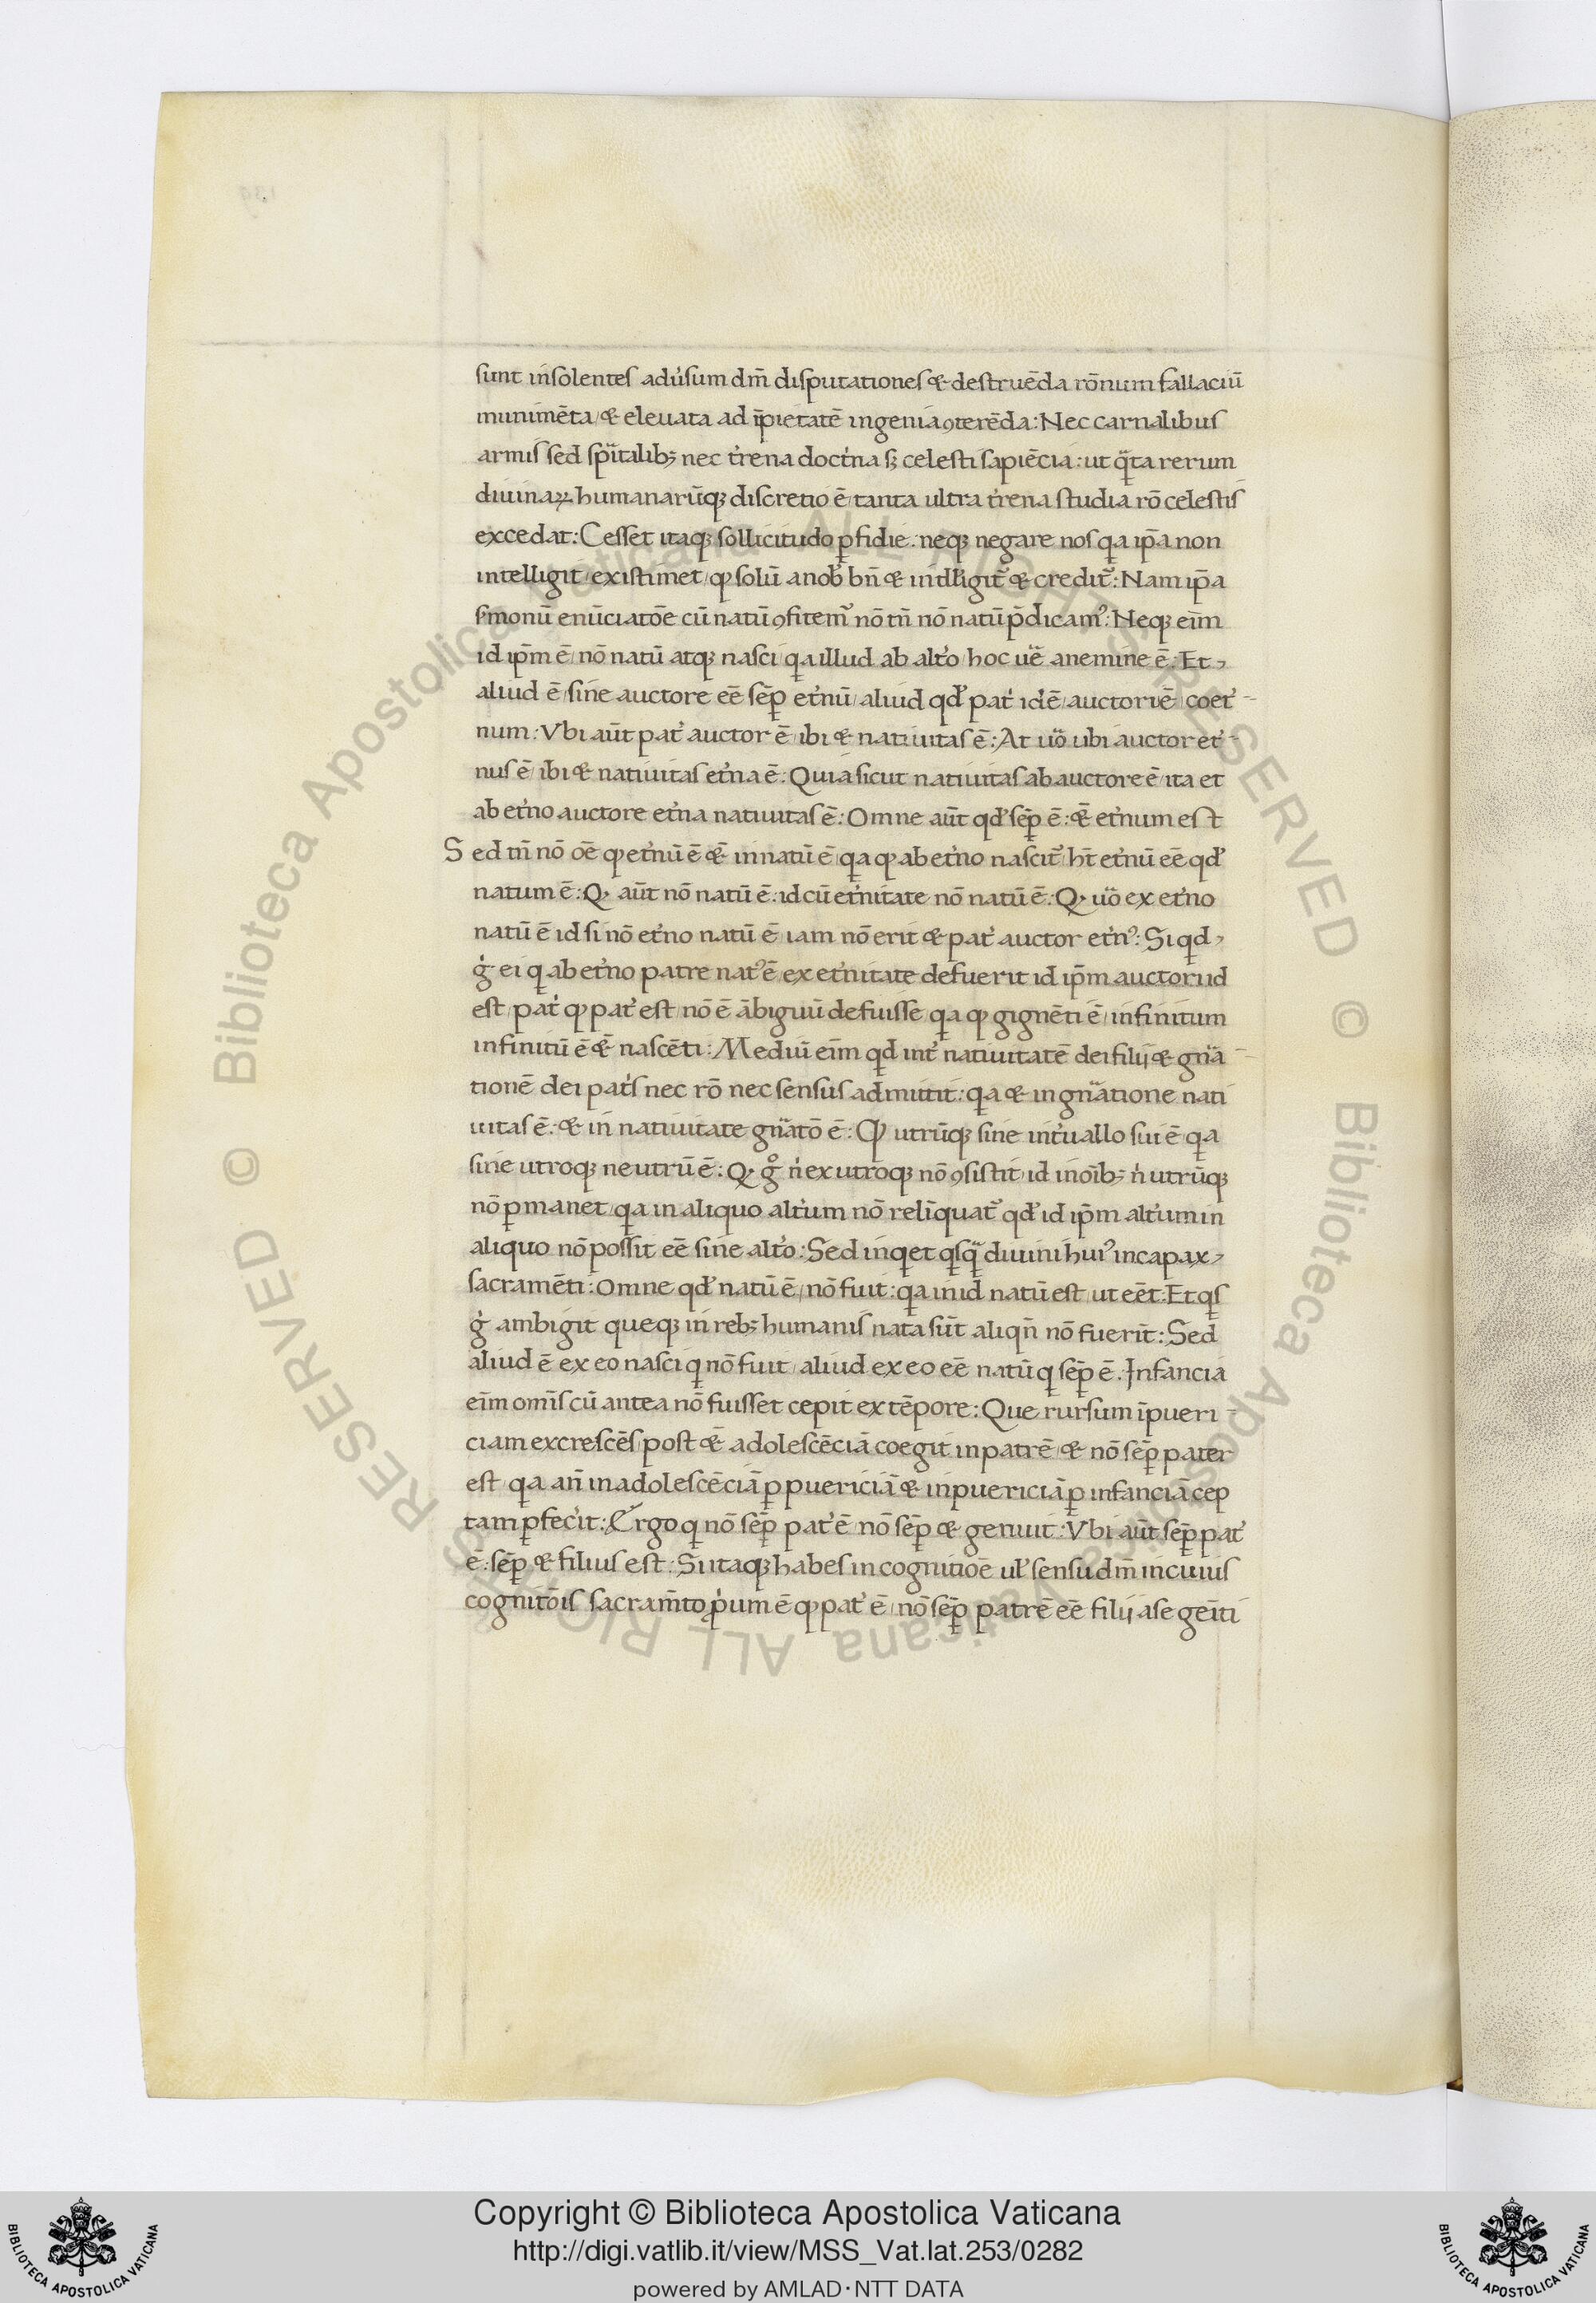 sunt insolentes adu'sum dm̄ disputationes & destruēda rōnum fallaciū
munimēta / & eleuata ad īpietatē ingenia ꝯterēda : Nec carnalibus
armis sed sp̄italibꝫ nec t'rena doct'na sꝫ celesti sapiēcia : ut q̄ta rerum
diuinaꝝ humanarūqꝫ discretio ē / tanta ultra t'rena studia rō celestis
excedat : Cesset itaqꝫ sollicitudo ꝑfidie : neqꝫ negare nos qa ip̄a non
intelligit / existimet / qꝫ solū a nob̄ bn̄ & intell'igit᷑ & credit᷑ : Nam ip̄a
s'monū enūciatōe cū natū ꝯfitem᷑ nō tn̄ nō natū p̄dicamꝰ : Neqꝫ eīm
id ip̄m ē / nō natū atqꝫ nasci / qa illud ab alt'o / hoc u'ē a nemine ē : Et
aliud ē / sine auctore eē sēꝑ et'nū / aliud qd' pat'i id'ē / auctori ē / coet'-
num : Vbi aūt pat' auctor ē / ibi & natiuitas ē : At uō ubi auctor et'-
nus ē / ibi & natiuitas et'na ē : Quia sicut natiuitas ab auctore ē / ita et
ab et'no auctore et'na natiuitas ē : Omne aūt qd' sēꝑ ē : &̄ et'num est
Sed tn̄ nō oē qꝫ et'nū ē &̄ innatū ē / qa qꝫ ab et'no nascit᷑ / ht̄ et'nū eē qd'
natum ē : Qꝫ aūt nō natū ē : id cū et'nitate nō natū ē : Qꝫ uō ex et'no
natū ē id si nō et'no natū ē / iam nō erit & pat' auctor et'nꝰ : Si qd
g' ei q ab et'no patre natꝰ ē / ex et'nitate defuerit id ip̄m auctori id
est / pat'i qꝫ pat' est / nō ē ābiguū defuisse / qa qꝫ gignēti ē / infinitum
infinitū ē &̄ nascēti : Mediū eīm qd int' natiuitatē dei filij & gn̄a-
tionē dei pat's nec rō nec sensus admittit : qa & in gn̄atione nati
uitas ē : & in natiuitate gn̄atō ē : Qꝫ utrūqꝫ sine int'uallo sui ē qa
sine utroqꝫ neutrū ē : Qꝫ gͦ n' ex utroqꝫ nō ꝯsistit / id in oīb; n' utrūqꝫ
nō ꝑmanet / qa in aliquo alt'um nō relīquat᷑ qd' id ip̄m alt'um in
aliquo nō possit eē sine alt'o : Sed inqet qsq̄ diuini huiꝰ incapax
sacramēti : Omne qd' natū ē / nō fuit : qa in id natū est / ut eēt : Et qs
g' ambigit queqꝫ in rebꝫ humanis nata sūt aliqn̄ nō fuerīt : Sed
aliud ē ex eo nasci q nō fuit / aliud ex eo eē natū q sēꝑ ē . Infancia
eīm omīs cū antea nō fuisset cepit ex tēpore : Que rursum ī pueri-
ciam excrescēs / post &̄ adolescēciā coegit in patrē / & nō sēꝑ pater
est / qa an̄ in adolescēciā ꝑ puericiā & in puericiā ꝑ infanciā cep
tam ꝓfec'it : Ergo q nō sēꝑ pat' ē / nō sēꝑ & genuit : Vbi aūt sēꝑ pat'
ē : sēꝑ & filius est : Si itaqꝫ habes in cognitiōe ul' sensu dm̄ in cuius
cognitōis sacram̄to p'um ē qꝫ pat' ē / nō sēꝑ patrē eē filij a se geīti
Copyright © Biblioteca Apostolica Vaticana
http://digi.vatlib.it/view/MSS_Vat.lat.253/0282
powered by AMLAD·NTT DATA
BIBLIOTECA APOSTOLICA VATICANA
BIBLIOTECA APOSTOLICA VATICANA
© Biblioteca Apostolica Vaticana ALL RIGHTS RESERVED
© Biblioteca Apostolica Vaticana ALL RIGHTS RESERVED